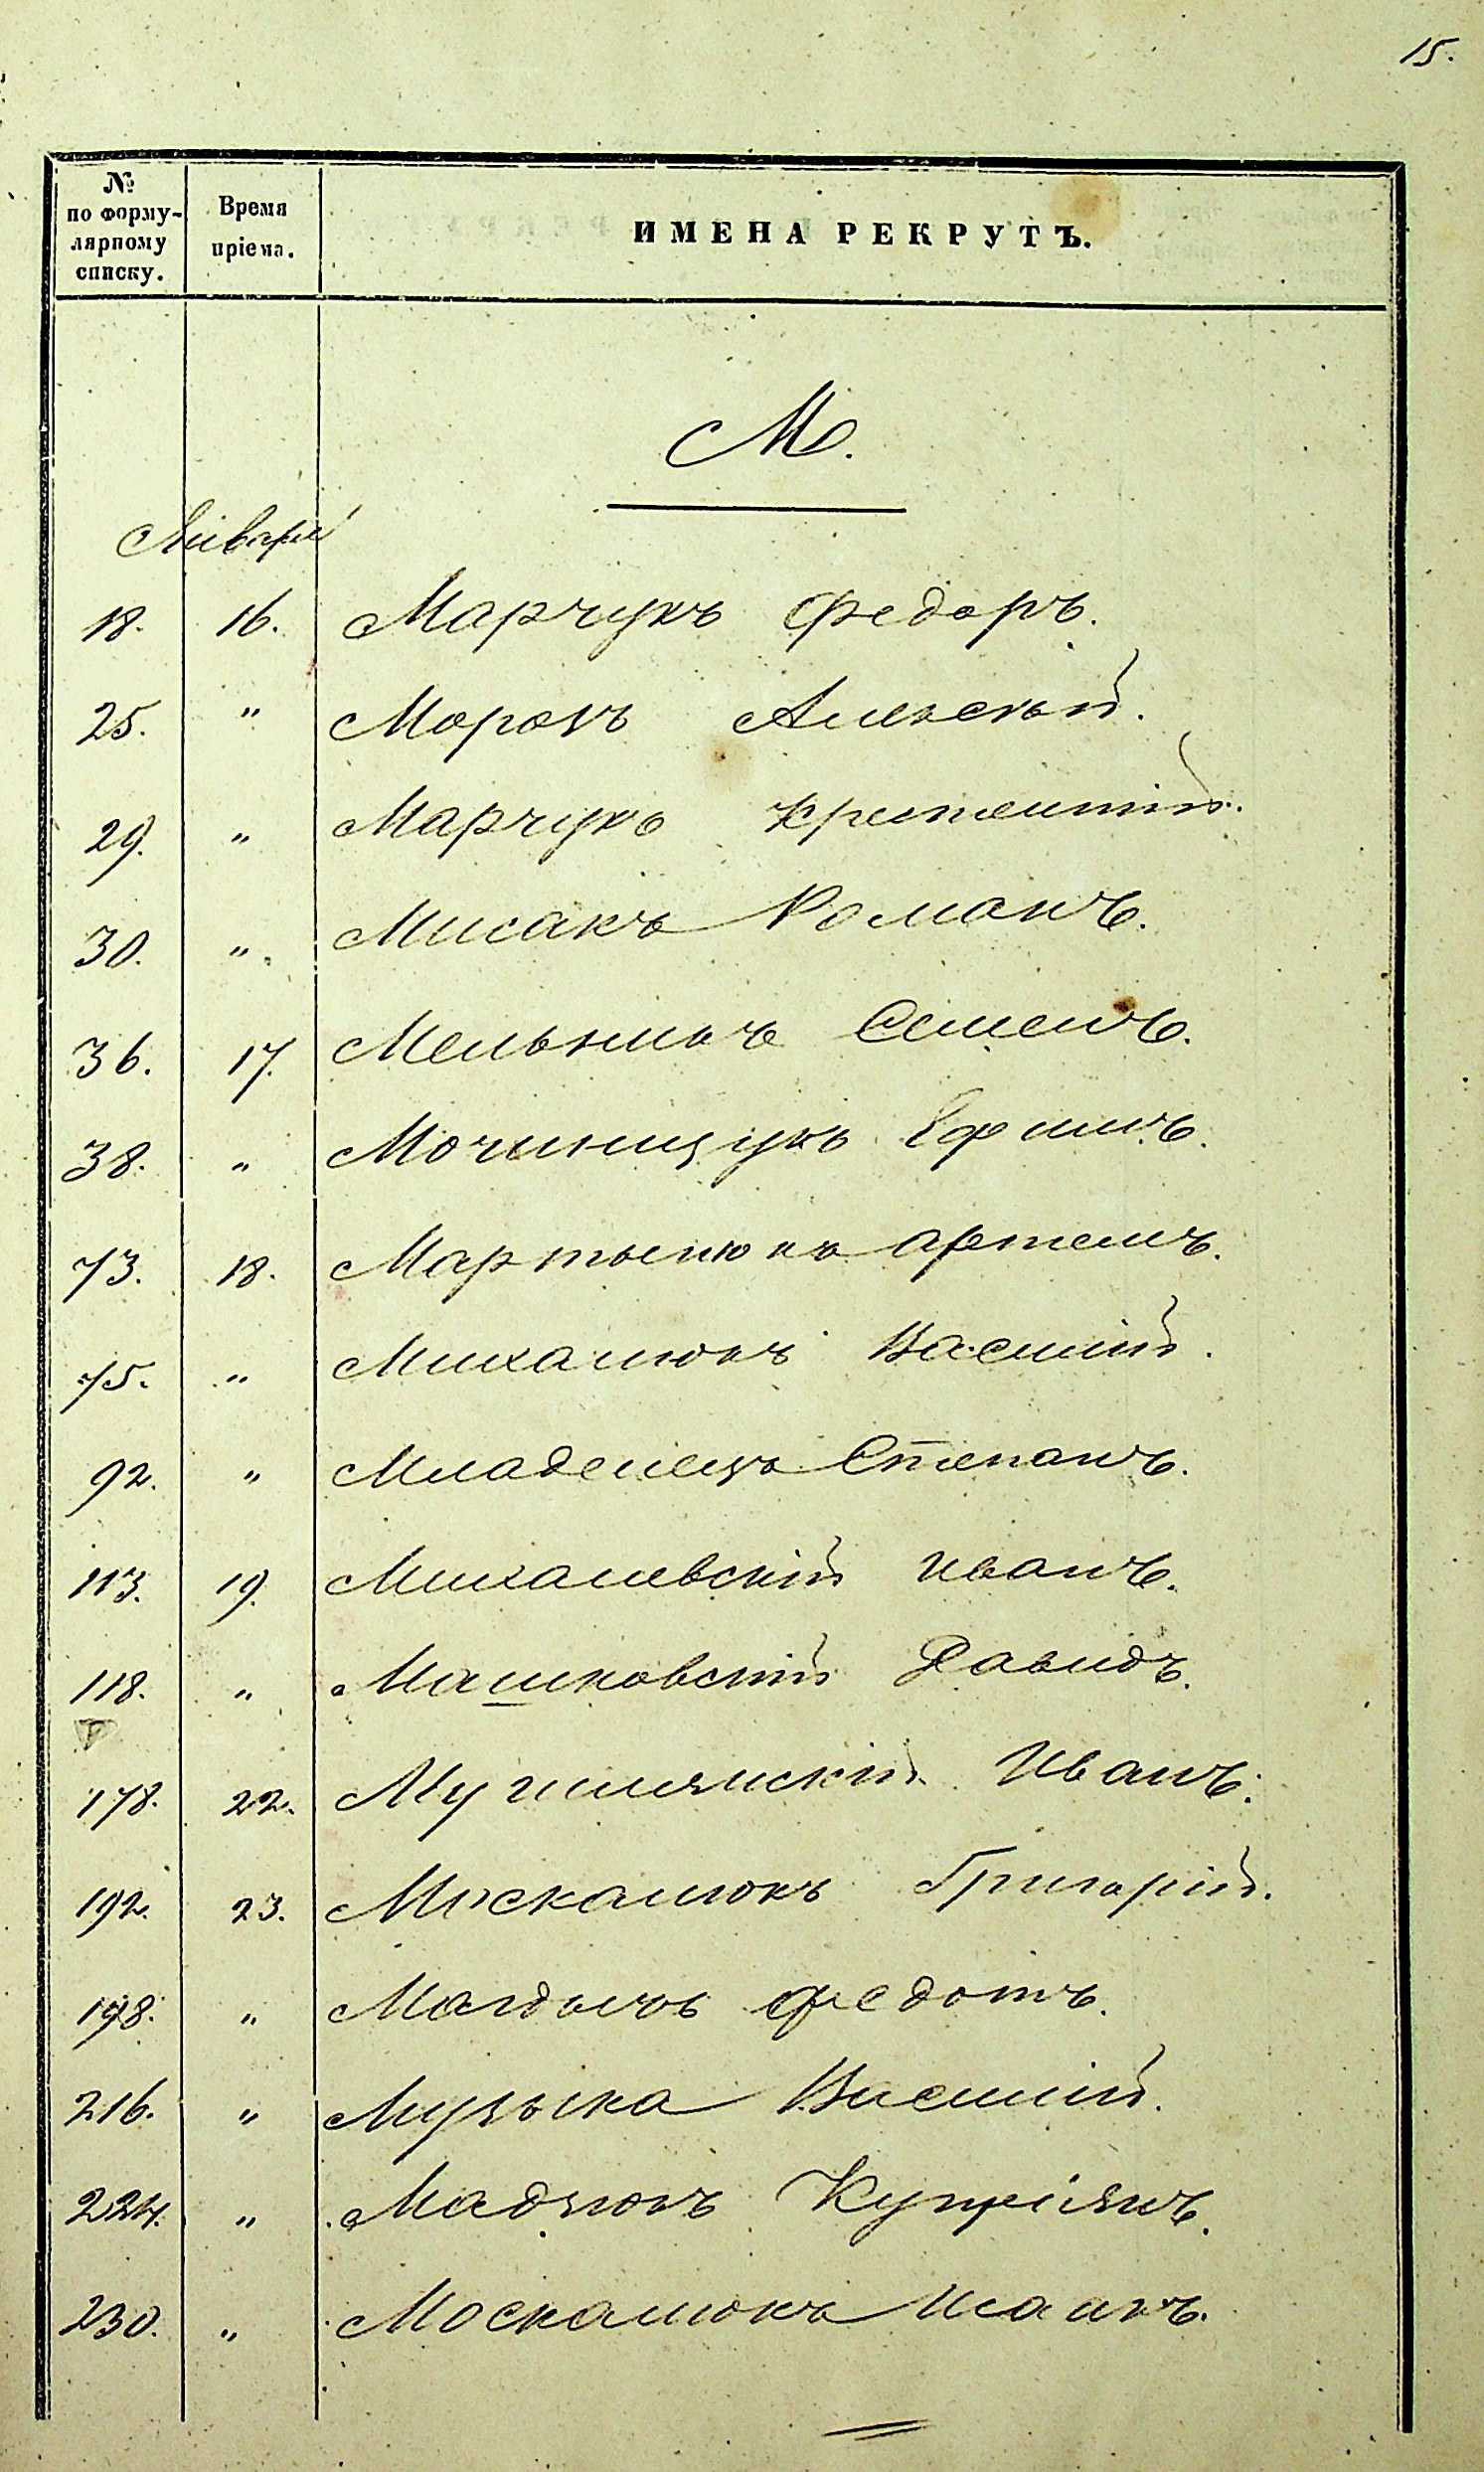 15.
№ по форму-лярному списку. Время пріема. ИМЕНА РЕКРУТЪ.
М.
Января
18. 16. Марчукъ Федоръ.
25. " Морозъ Алексѣй.
29. " Марчукъ
30. " Мисакъ Романъ.
36. 17. Мельникъ Семенъ.
38. " Мочинщукъ Ефимъ.
73. 18. Мартынюкъ Артемъ.
75. " Михалюкъ Василій.
92. " Младенецъ Степанъ.
113. 19. Михалевскій Иванъ.
118. " Машковскій Давидъ.
178. 22. Иванъ.
192. 23. Москалюкъ Григорій.
198. " Федотъ.
216. " Музыка Василій.
224. " Мадзюкъ Купріянъ.
230. " Москалюкъ